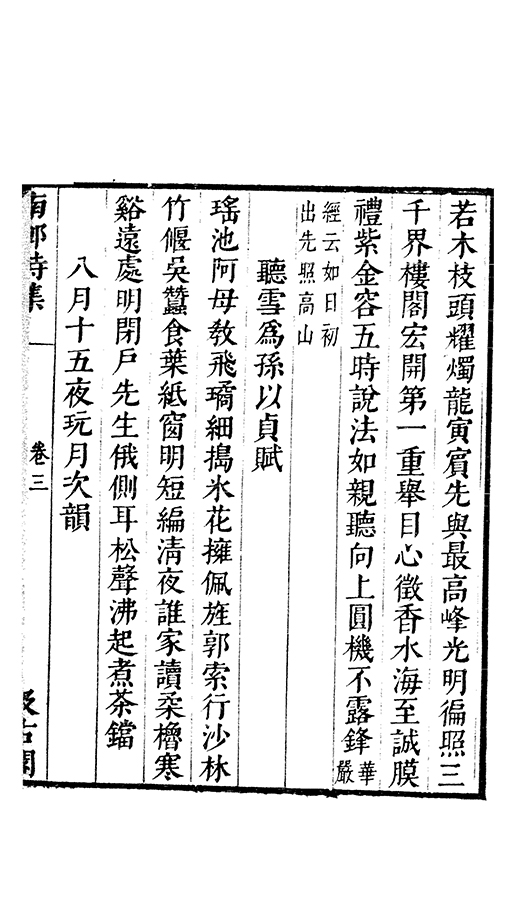 若木枝頭耀燭龍寅賓先與最高峰光明徧照三
千界樓閣宏開第一重舉目心徵香水海至誠膜
禮紫金容五時說法如親聽向上圓機不露鋒華嚴
經云如日初
出先照高山
聽雪爲孫以貞賦
瑤池阿母敎飛璚細搗氷花擁佩旌郭索行沙林
竹偃吳蠶食葉紙窗明短編淸夜誰家讀柔櫓寒
谿遠處明閉戶先生俄側耳松聲沸起煮茶鐺
八月十五夜玩月次韻
南邨詩集
卷三
汲古閣